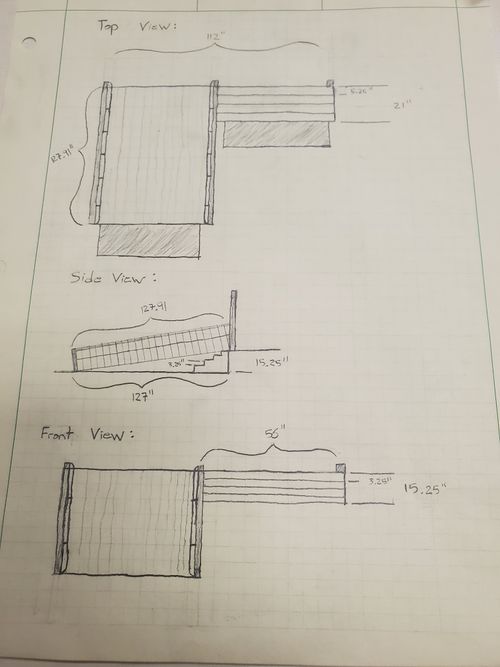 Top View:
112"
5.25"
21"
127.91
Side View:
127.91
3.25"
15.25"
127"
Front View:
56"
3.25"
15.25"